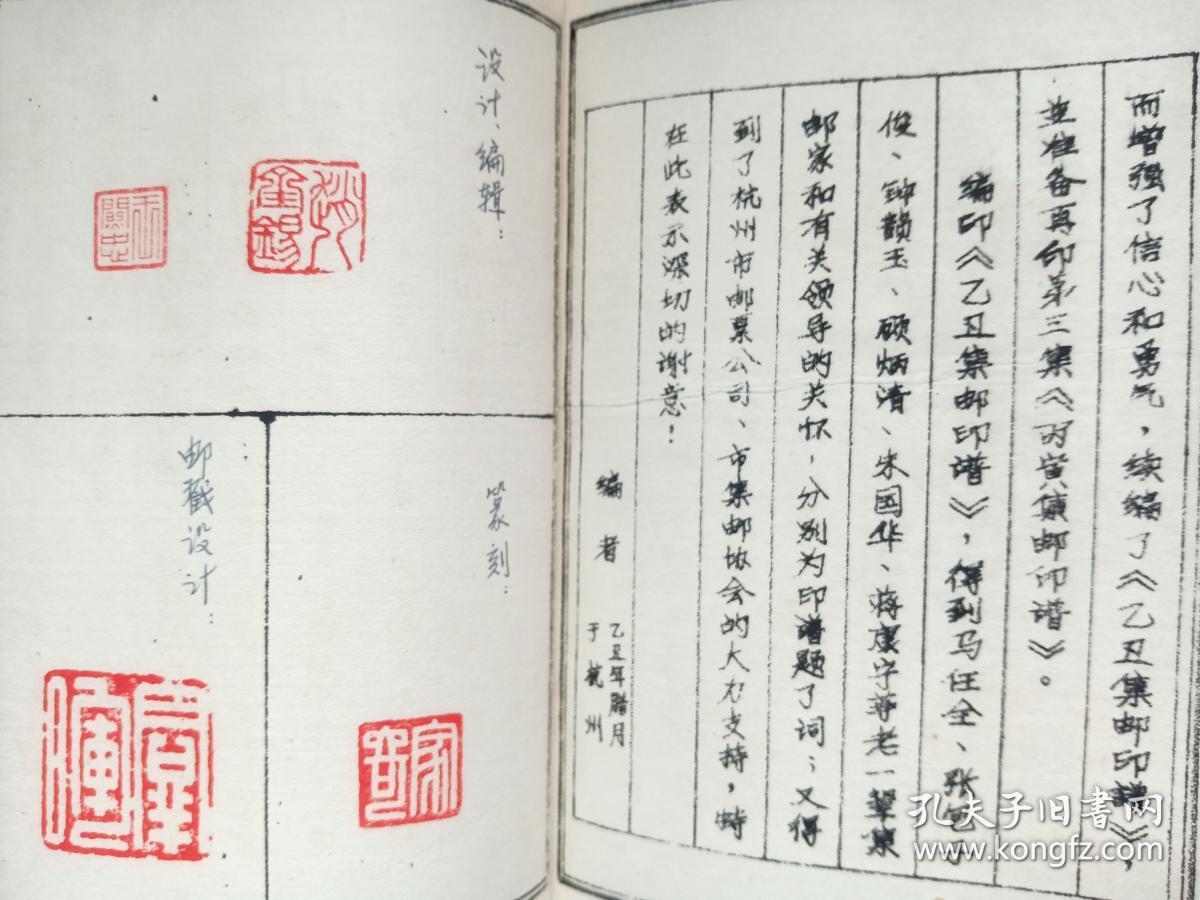 而增强了信心和勇气，续编了《乙丑集邮印谱》，
並准备再印第三集《丙寅集邮印谱》。
编印《乙丑集邮印谱》，得到马任全、张包子
俊、钟韵玉、顾炳清、朱国华、蒋虞字等老一辈集
邮家和有关领导的关怀，分别为印谱题了词；又得
到了杭州市邮票公司、市集邮协会的大力支持，特
在此表示深切的谢意！
编者
乙丑年腊月
于杭州
设计、编辑：
篆刻：
邮戳设计：
孔夫子旧书网
www.kongfz.com